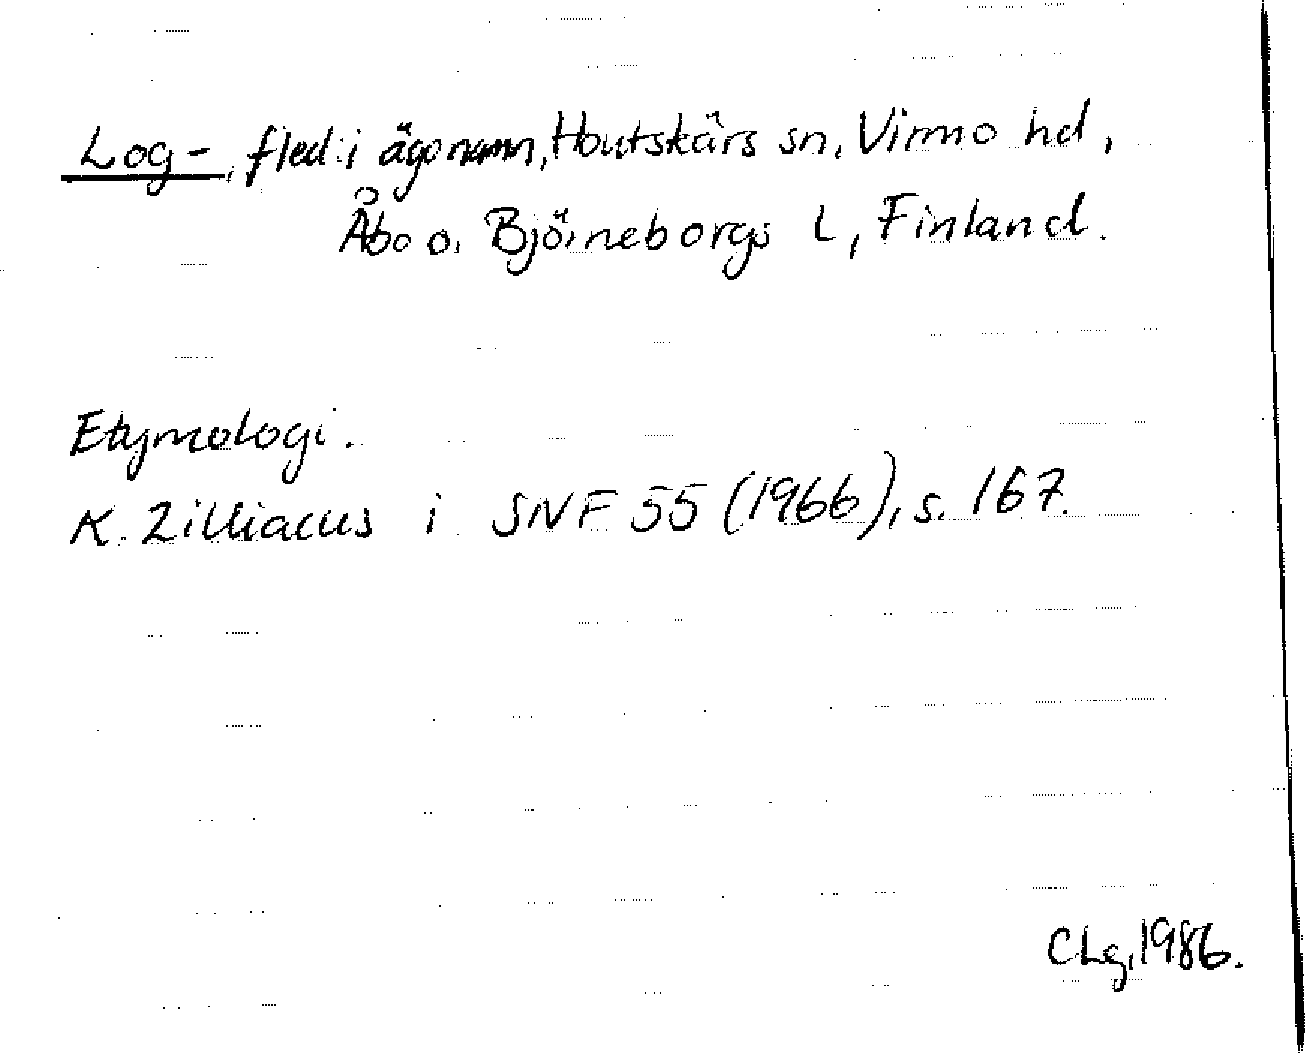 Log-, fled i ägonamn, Houtskärs sn, Virmo hd,
Åbo o. Björneborgs L, Finland.
Etymologi.
K. Zilliacus i SNF 55 (1966), s. 167.
CLg, 1986.